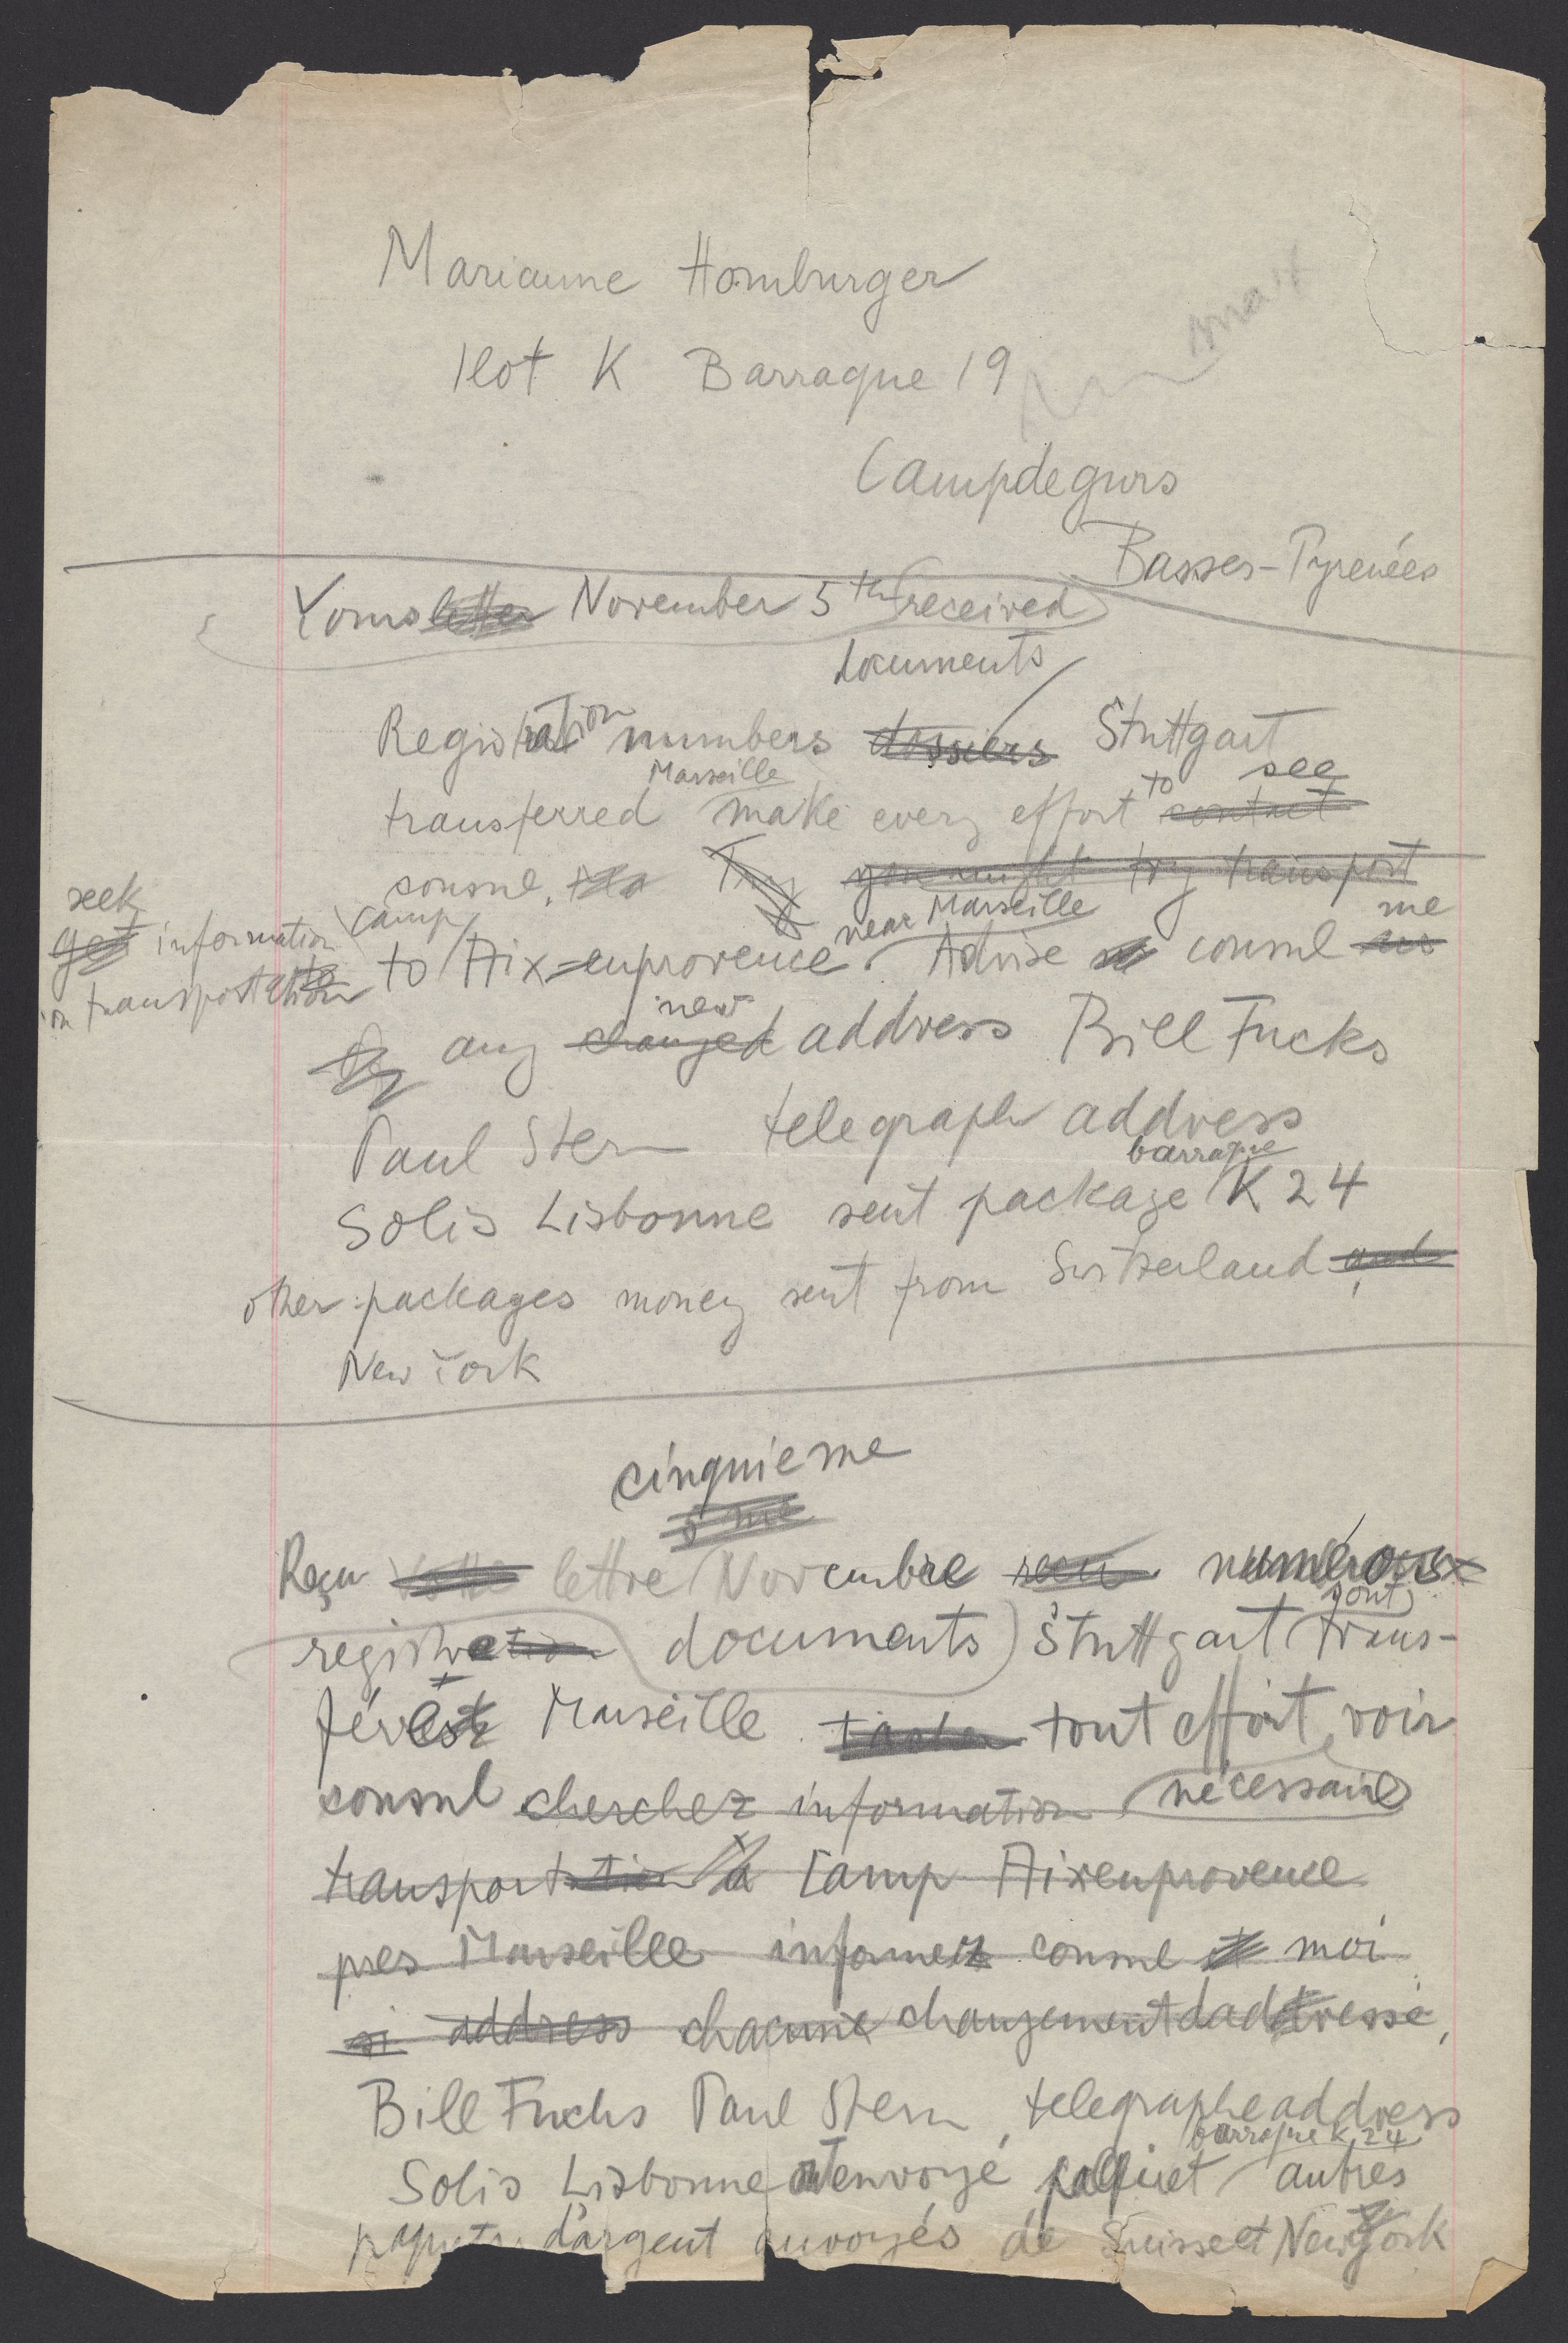 Marianne Homburger
Ilot K Barraque 19
Campdegurs
Basses-Pyrenées
Yours letter November 5th received
documents
Registration numbers dossiers Stuttgart
Marseille to see
transferred make every effort contact
consul. Try you might try transport
seek camp near Marseille me
get information to Aix-enprovence. Advise consul us
on transportation
new
any changed address Bill Fucks
Paul Stern telegraph address
barraque
Solis Lisbonne sent package K 24
other packages money sent from Switzerland and
New York
cinquieme
5 me
Reçu lettre Novembre reçu numéros
sont
registration documents Stuttgart trans-
férés Marseille tout effort voir
consul cherchez information nécessaire
transportation à Camp Aixenprovence
pres Marseille informez consul et moi
si address chacune changement daddresse,
Bill Fuchs Paul Stern, telegraphe address
barraque K 24
Solis Lisbonne ont envoyé paquet autres
paquets d'argent envoyés de Suisse et New York